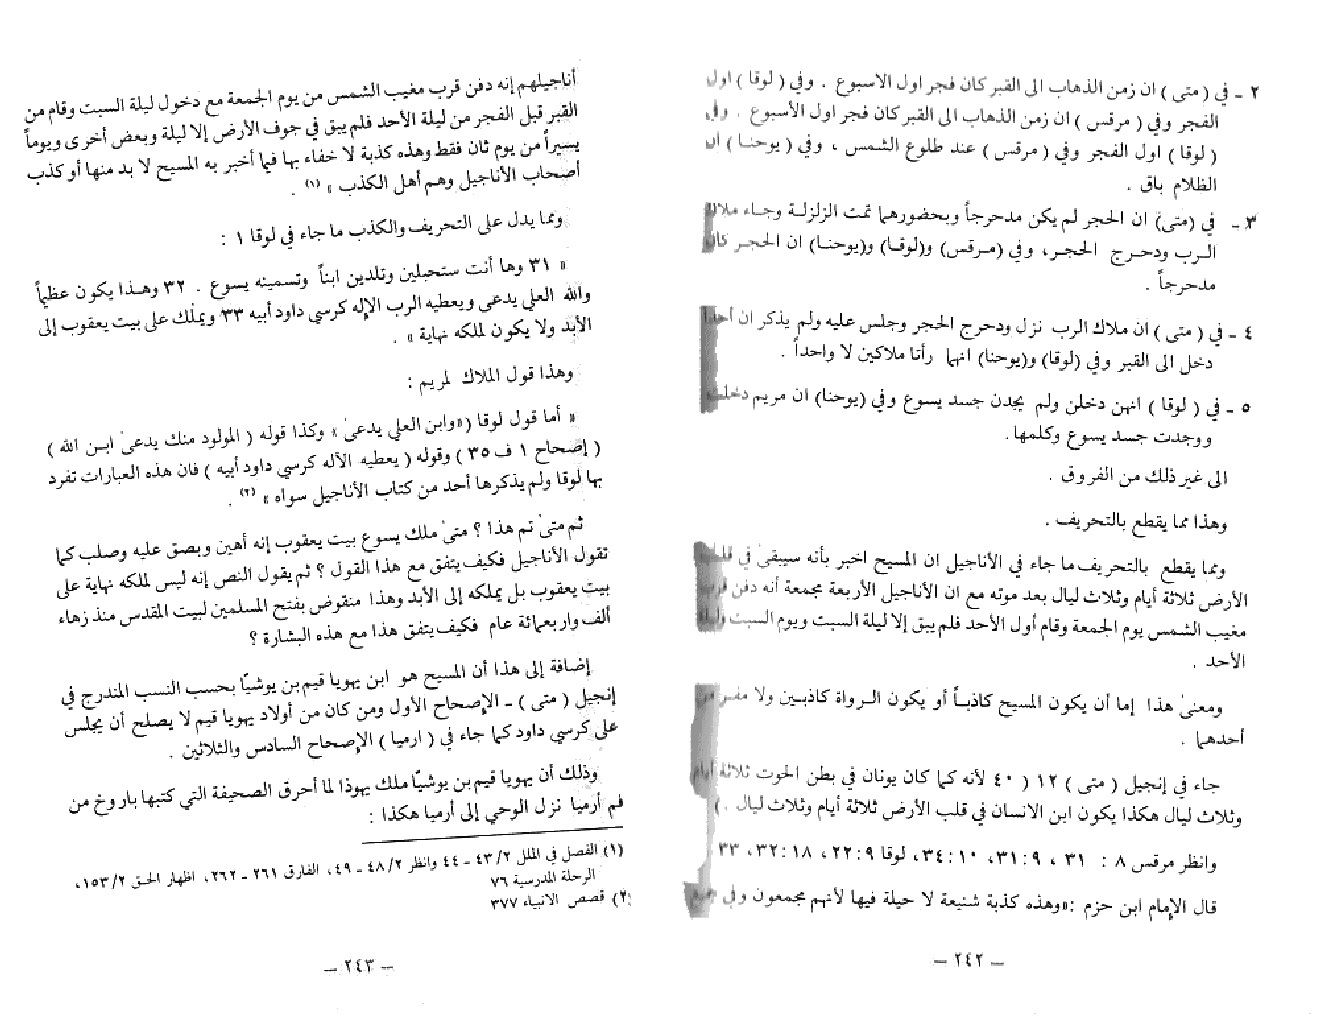 ٢ ـ في ( متى ) ان زمن الذهاب الى القبر كان فجر اول الاسبوع . وفي ( لوقا ) اول
الفجر وفي ( مرقس ) ان زمن الذهاب الى القبر كان فجر اول الأسبوع . وفي
( لوقا ) اول الفجر وفي ( مرقس ) عند طلوع الشمس ، وفي ( يوحنا ) ان
الظلام باق .
٣ ـ في (متى) ان الحجر لم يكن مدحرجاً وبحضورهما تمت الزلزلة وجاء ملاك
الرب ودحرج الحجر، وفي (مرقس) و(لوقا) و(يوحنا) ان الحجر كان
مدحرجاً .
٤ ـ في ( متى ) ان ملاك الرب نزل ودحرج الحجر وجلس عليه ولم يذكر ان أحداً
دخل الى القبر وفي (لوقا) و(يوحنا) انهما رأتا ملاكين لا واحداً .
٥ ـ في ( لوقا ) انهن دخلن ولم يجدن جسد يسوع وفي (يوحنا) ان مريم دخلت
ووجدت جسد يسوع وكلمها .
الى غير ذلك من الفروق .
وهذا مما يقطع بالتحريف .
ومما يقطع بالتحريف ما جاء في الأناجيل ان المسيح اخبر بأنه سيبقىٰ في قلب
الأرض ثلاثة أيام وثلاث ليال بعد موته مع ان الأناجيل الأربعة مجمعة أنه دفن قرب
مغيب الشمس يوم الجمعة وقام أول الأحد فلم يبق إلا ليلة السبت ويوم السبت وليلة
الأحد .
ومعنىٰ هذا إما أن يكون المسيح كاذباً أو يكون الرواة كاذبين ولا مفر من
أحدهما .
جاء في إنجيل ( متى ) ١٢ ( ٤٠ لأنه كما كان يونان في بطن الحوت ثلاثة أيام
وثلاث ليال هكذا يكون ابن الانسان في قلب الأرض ثلاثة أيام وثلاث ليال . )
وانظر مرقس ٨ : ٣١ ، ٩ :٣١، ١٠ :٣٤، لوقا ٩ :٢٢، ١٨ :٣٢، ٣٣ .
قال الإمام ابن حزم :«وهذه كذبة شنيعة لا حيلة فيها لأنهم مجمعون وفي جميع
ـ ٢٤٢ ـ
أناجيلهم إنه دفن قرب مغيب الشمس من يوم الجمعة مع دخول ليلة السبت وقام من
القبر قبل الفجر من ليلة الأحد فلم يبق في جوف الأرض إلا ليلة وبعض أخرى ويوماً
يسيراً من يوم ثان فقط وهذه كذبة لا خفاء بها فيما أخبر به المسيح لا بد منها أو كذب
أصحاب الأناجيل وهم أهل الكذب » (١) .
ومما يدل على التحريف والكذب ما جاء في لوقا ١ :
« ٣١ وها أنت ستحبلين وتلدين ابناً وتسمينه يسوع . ٣٢ وهذا يكون عظيماً
والله العلي يدعى ويعطيه الرب الإله كرسي داود أبيه ٣٣ ويملك على بيت يعقوب إلى
الأبد ولا يكون لملكه نهاية » .
وهذا قول الملاك لمريم :
« أما قول لوقا (« وابن العلي يدعىٰ » وكذا قوله ( المولود منك يدعىٰ ابن الله )
( إصحاح ١ ف ٣٥ ) وقوله ( يعطيه الأله كرسي داود أبيه ) فان هذه العبارات تفرد
بها لوقا ولم يذكرها أحد من كتاب الأناجيل سواه » (٢) .
ثم متىٰ تم هذا ؟ متىٰ ملك يسوع بيت يعقوب إنه أهين وبصق عليه وصلب كما
تقول الأناجيل فكيف يتفق مع هذا القول ؟ ثم يقول النص إنه ليس لملكه نهاية على
بيت يعقوب بل يملكه إلى الأبد وهذا منقوض بفتح المسلمين لبيت المقدس منذ زهاء
ألف واربعمائة عام فكيف يتفق هذا مع هذه البشارة ؟
إضافة إلى هذا أن المسيح هو ابن يهويا قيم بن يوشيّا بحسب النسب المندرج في
إنجيل ( متى ) ـ الإصحاح الأول ومن كان من أولاد يهويا قيم لا يصلح أن يجلس
على كرسي داود كما جاء في ( ارميا ) الإصحاح السادس والثلاثين .
وذلك أن يهويا قيم بن يوشيّا ملك يهوذا لما أحرق الصحيفة التي كتبها باروخ من
فم أرميا نزل الوحي إلى أرميا هكذا :
(١) الفصل في الملل ٢/ ٤٣ ـ ٤٤ وانظر ٢/ ٤٨ ـ ٤٩، الفارق ٢٦١ ـ ٢٦٢، اظهار الحق ٢/ ١٥٣،
الرحلة المدرسية ٧٦
(٢) قصص الانبياء ٣٧٧
ـ ٢٤٣ ـ